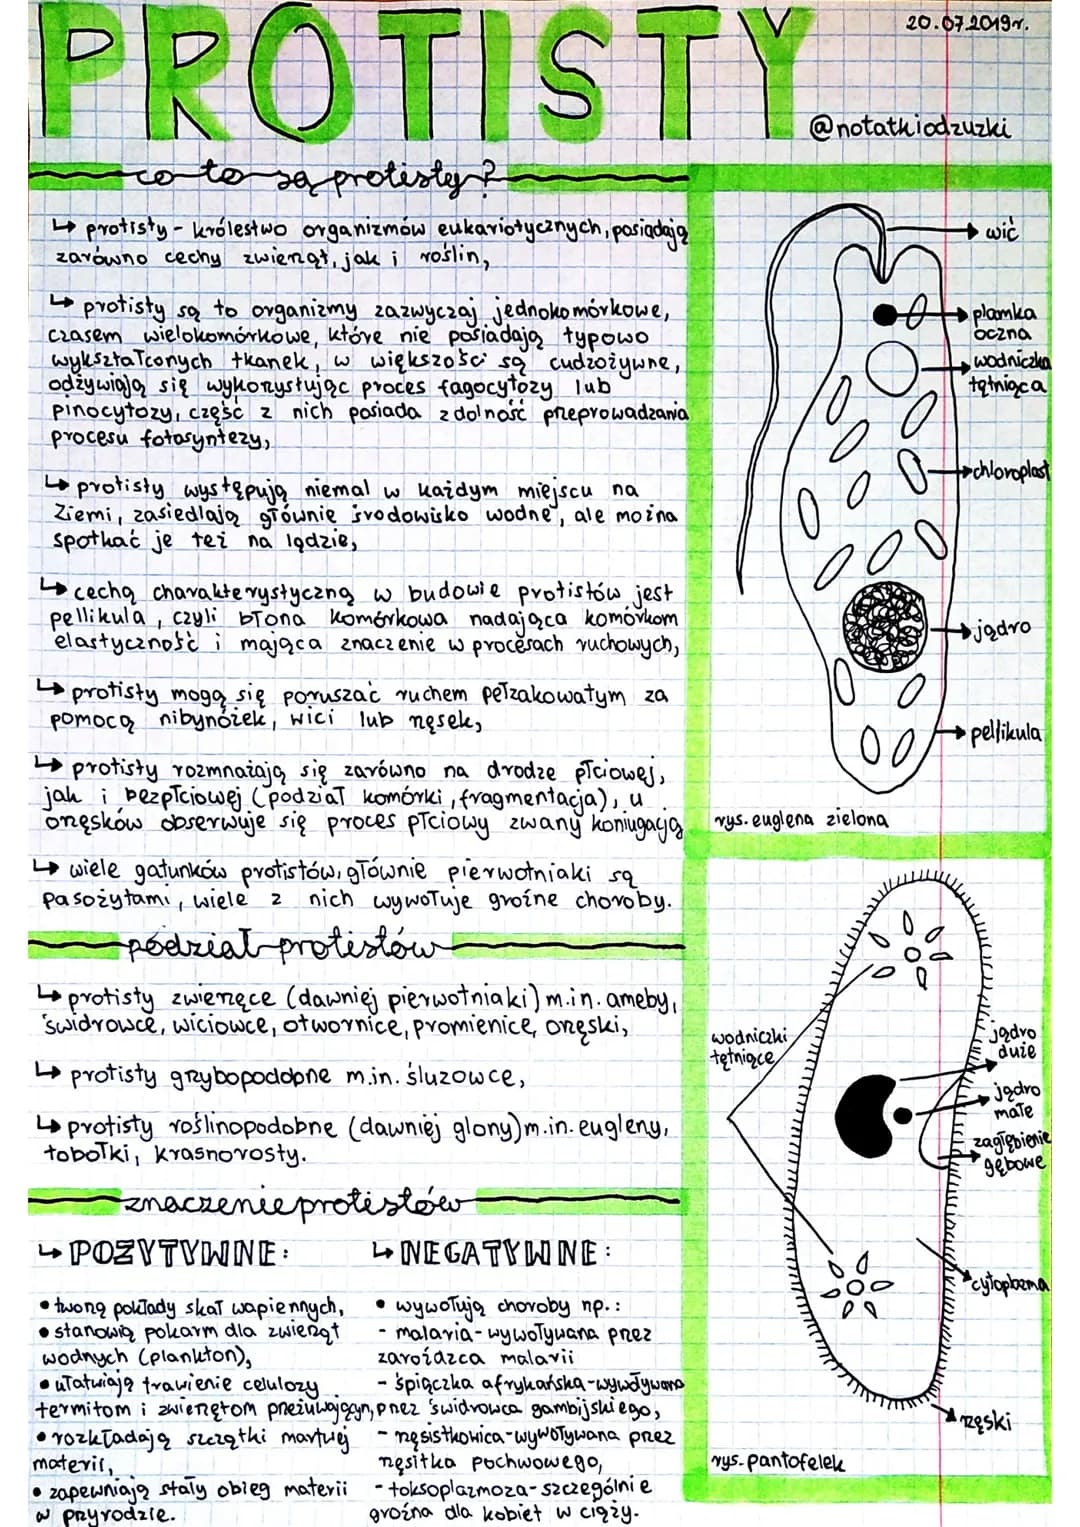 PROTISTY
20.07.2019r.
@notatkiodzuzki
co to są protisty?
↳ protisty - królestwo organizmów eukariotycznych, posiadają
zarówno cechy zwierząt, jak i roślin,
↳ protisty są to organizmy zazwyczaj jednokomórkowe,
czasem wielokomórkowe, które nie posiadają typowo
wykształconych tkanek, w większości są cudzożywne,
odżywiają się wykorzystując proces fagocytozy lub
pinocytozy, część z nich posiada zdolność przeprowadzania
procesu fotosyntezy,
↳ protisty występują niemal w każdym miejscu na
Ziemi, zasiedlają głównie środowisko wodne, ale można
spotkać je też na lądzie,
↳ cechą charakterystyczną w budowie protistów jest
pellikula, czyli błona komórkowa nadająca komórkom
elastyczność i mająca znaczenie w procesach ruchowych,
↳ protisty mogą się poruszać ruchem pełzakowatym za
pomocą nibynóżek, wici lub rzęsek,
↳ protisty rozmnażają się zarówno na drodze płciowej,
jak i bezpłciowej (podział komórki, fragmentacja), u
orzęsków obserwuje się proces płciowy zwany koniugacją
↳ wiele gatunków protistów, głównie pierwotniaki są
pasożytami, wiele z nich wywołuje groźne choroby.
podział protistów
↳ protisty zwierzęce (dawniej pierwotniaki) m.in. ameby,
świdrowce, wiciowce, otwornice, promienice, orzęski,
↳ protisty grzybopodobne m.in. śluzowce,
↳ protisty roślinopodobne (dawniej glony) m.in. eugleny,
tobołki, krasnorosty.
znaczenie protistów
↳ POZYTYWNE:
• tworzą pokłady skał wapiennych,
• stanowią pokarm dla zwierząt
wodnych (plankton),
• ułatwiają trawienie celulozy
termitom i zwierzętom przeżuwającym,
• rozkładają szczątki martwej
materii,
• zapewniają stały obieg materii
w przyrodzie.
↳ NEGATYWNE:
• wywołują choroby np.:
- malaria - wywoływana przez
zarodźca malarii
- śpiączka afrykańska - wywoływana
przez świdrowca gambijskiego,
- rzęsistkowica - wywoływana przez
rzęsitka pochwowego,
- toksoplazmoza - szczególnie
groźna dla kobiet w ciąży.
wić
plamka
oczna
wodniczka
tętniąca
chloroplast
jądro
pellikula
rys. euglena zielona
wodniczki
tętniące
jądro
duże
jądro
małe
zagłębienie
gębowe
cytoplazma
rzęski
rys. pantofelek